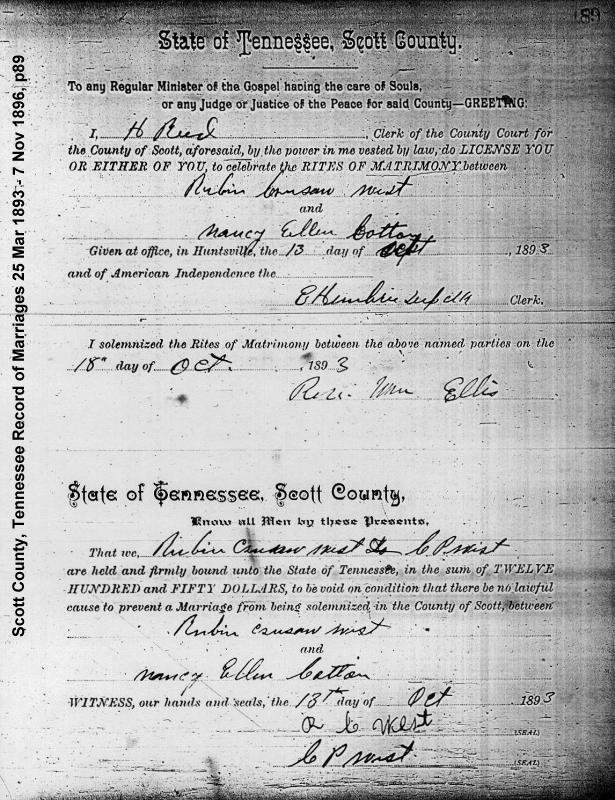 89
State of Tennessee, Scott County.
To any Regular Minister of the Gospel having the care of Souls,
or any Judge or Justice of the Peace for said County—GREETING:
I, H Reed, Clerk of the County Court for
the County of Scott, aforesaid, by the power in me vested by law, do LICENSE YOU
OR EITHER OF YOU, to celebrate the RITES OF MATRIMONY between
Rubin Crusaw West
and
Nancy Ellen Cotton
Given at office, in Huntsville, the 13 day of Oct, 1893
and of American Independence the
Clerk.
I solemnized the Rites of Matrimony between the above named parties on the
18" day of Oct., 1893
Rev. Wm Ellis
State of Tennessee, Scott County,
Know all Men by these Presents,
That we, Rubin Crusaw West & C P West
are held and firmly bound unto the State of Tennessee, in the sum of TWELVE
HUNDRED and FIFTY DOLLARS, to be void on condition that there be no lawful
cause to prevent a Marriage from being solemnized in the County of Scott, between
Rubin Crusaw West
and
Nancy Ellen Cotton
WITNESS, our hands and seals, the 13th day of Oct 1893
R C West (SEAL)
C P West (SEAL)
Scott County, Tennessee Record of Marriages 25 Mar 1893 - 7 Nov 1896, p89